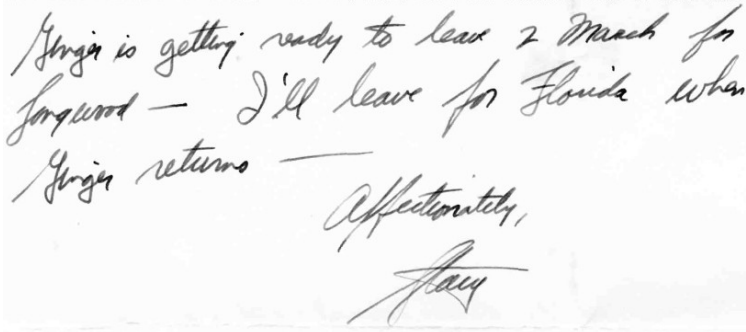 Ginger is getting ready to leave 2 March for
Longwood — I'll leave for Florida when
Ginger returns —
Affectionately,
Stacy